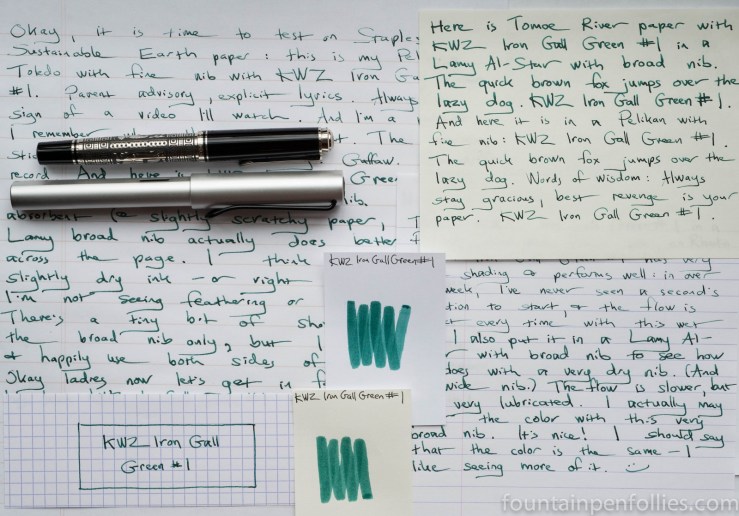 Okay, it is time to test on Staples
Sustainable Earth paper: this is my Pel
Toledo with fine nib with KWZ Iron Ga
#1. Parent advisory, explicit lyrics. Always
sign of a video I'll watch. And I'm a
I remember
t. The
Stic
Guffaw.
record And here is
Green
nib.
absorbent (& slightly scratchy paper, T
Lamy broad nib actually does better
across the page. I think
slightly dry ink - or right
I'm not seeing feathering or
There's a tiny bit of sha
the broad nib only, but I
& happily use both sides of
Okay ladies now let's get in f
Here is Tomoe River paper with
KWZ Iron Gall Green #1 in a
Lamy Al-Star with broad nib.
The quick brown fox jumps over the
lazy dog. KWZ Iron Gall Green #1.
And here it is in a Pelikan with
fine nib: KWZ Iron Gall Green #1.
The quick brown fox jumps over the
lazy dog. Words of wisdom: Always
stay gracious, best revenge is your
paper. KWZ Iron Gall Green #1.
KWZ Iron Gall Green #1
has very
shading & performs well: in over
week, I've never seen a second's
tion to start, & the flow is
t every time with this wet
I also put it in a Lamy Al-
with broad nib to see how
does with a very dry nib. (And
wide nib.) The flow is slower, but
very lubricated. I actually may
the color with this very
broad nib. It's nice! I should say
that the color is the same - I
like seeing more of it.
KWZ Iron Gall
Green #1
KWZ Iron Gall Green #1
fountainpenfollies.com